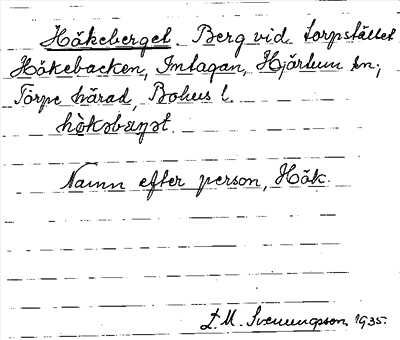 Hökeberget. Berg vid torpstället
Hökebacken, Intagan, Hjärtum sn,
Torpe härad, Bohus l.
hö̀kəbæ̨rjət.
Namn efter person, Hök.
D.M. Svenungsson, 1935.